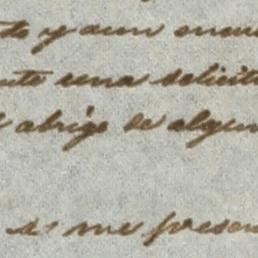 to y aun
una solicit
abrigo de algun
se me presen